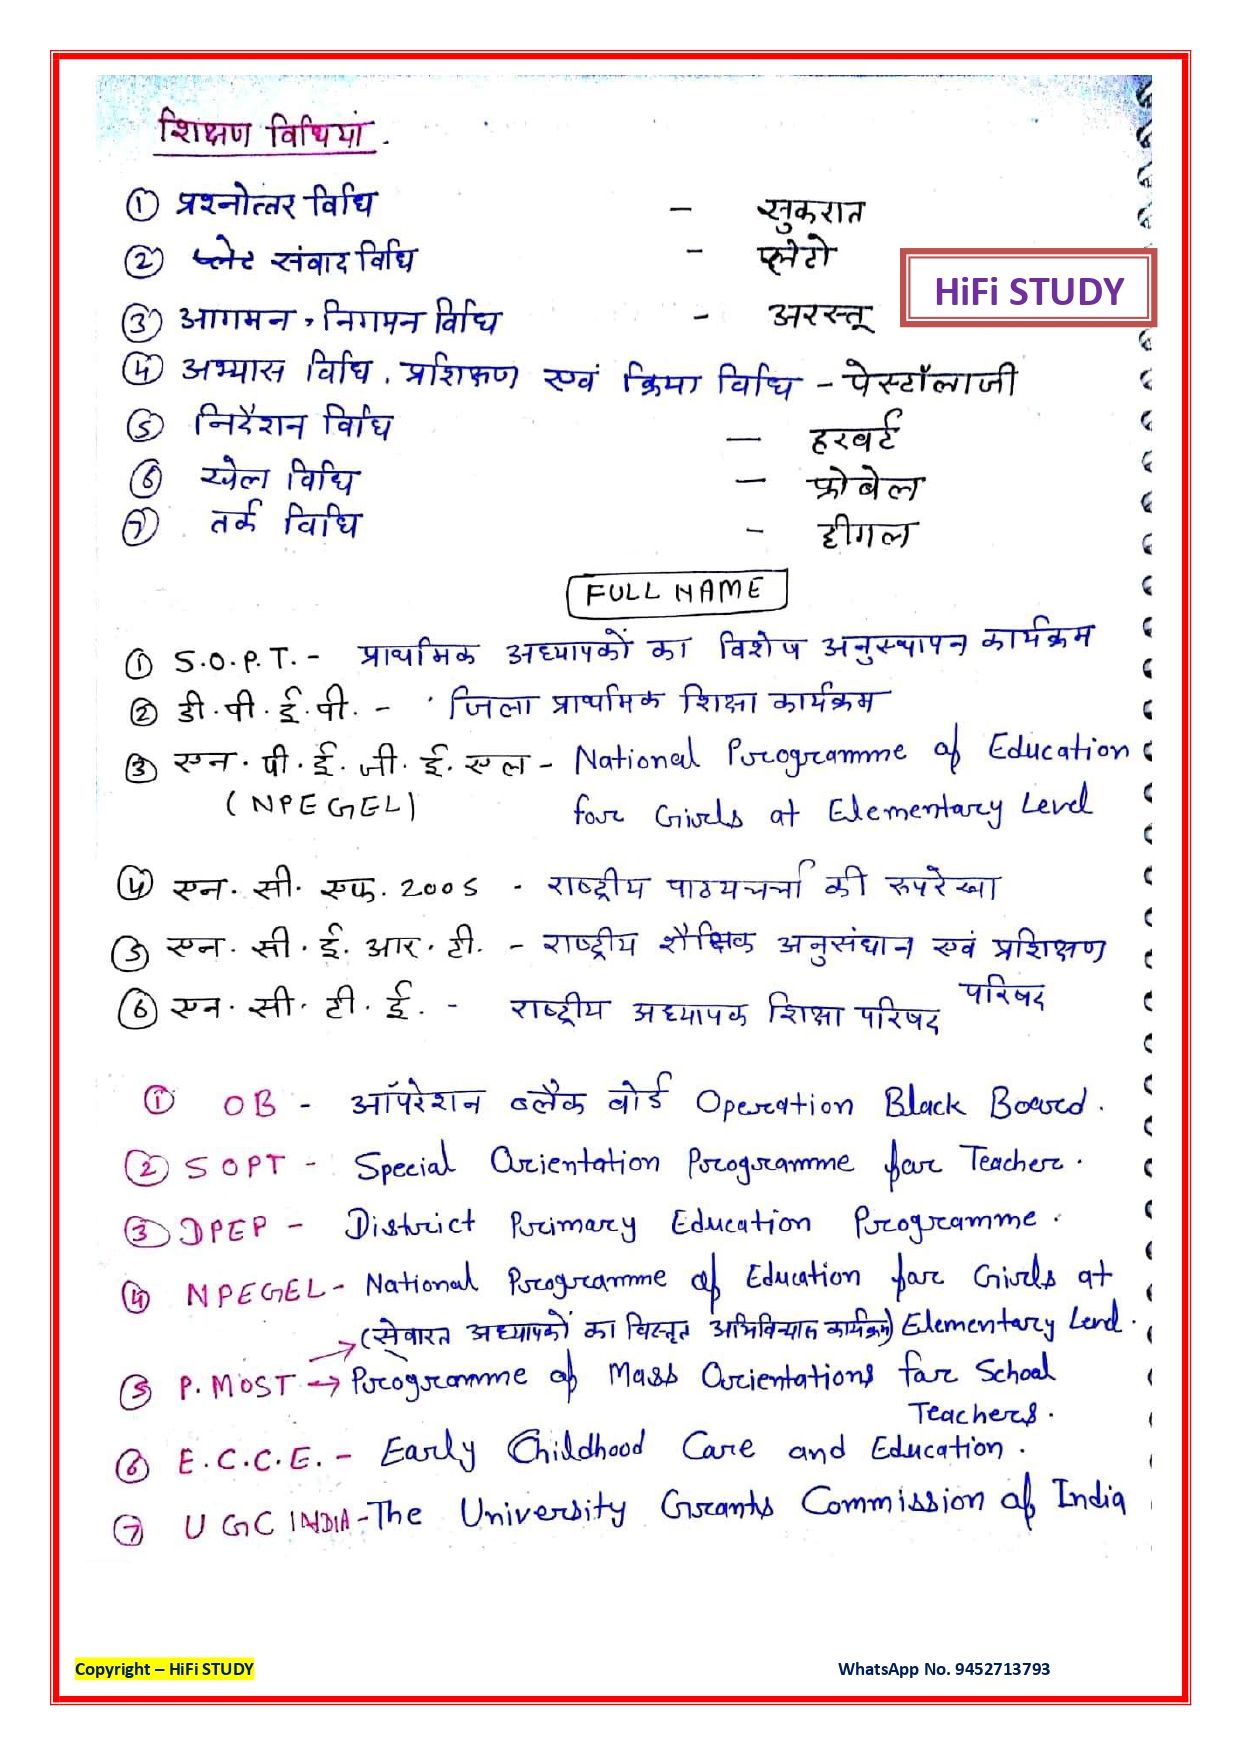 शिक्षण विधियां .
① प्रश्नोत्तर विधि - सुकरात
② संवाद विधि - प्लेटो
HiFi STUDY
③ आगमन, निगमन विधि - अरस्तू
④ अभ्यास विधि, प्रशिक्षण एवं क्रिया विधि - पेस्टॉलाजी
⑤ निर्देशन विधि - हरबर्ट
⑥ खेल विधि - फ्रोबेल
⑦ तर्क विधि - हीगल
FULL NAME
① S.O.P.T. - प्राथमिक अध्यापकों का विशेष अनुस्थापन कार्यक्रम
② डी.पी.ई.पी. - जिला प्राथमिक शिक्षा कार्यक्रम
③ एन.पी.ई.जी.ई.एल - National Programme of Education
(NPEGEL) for Girls at Elementary Level
④ एन.सी.एफ. 2005 - राष्ट्रीय पाठयचर्चा की रुपरेखा
⑤ एन.सी.ई.आर.टी. - राष्ट्रीय शैक्षिक अनुसंधान एवं प्रशिक्षण
परिषद
⑥ एन.सी.टी.ई. - राष्ट्रीय अध्यापक शिक्षा परिषद
① OB - ऑपरेशन ब्लैक बोर्ड Operation Black Board.
② SOPT - Special Orientation Programme for Teacher.
③ DPEP - District Primary Education Programme.
④ NPEGEL - National Programme of Education for Girls at
(सेवारत अध्यापकों का विस्तृत अभिविन्यास कार्यक्रम) Elementary Level.
⑤ P.MOST → Programme of Mass Orientations for School
Teachers.
⑥ E.C.C.E. - Early Childhood Care and Education.
⑦ UGC INDIA - The University Grants Commission of India
Copyright – HiFi STUDY WhatsApp No. 9452713793